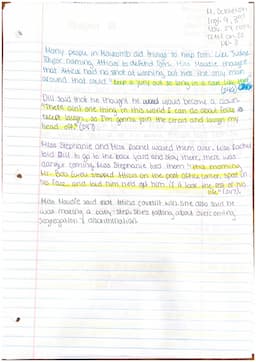 Engl. 9, 3rd
Many people in Maycomb did things to help Tom Lee, Judge
Taylor naming Atticus to defend Tom. Miss Maudie thought
that Atticus had no shot at winning, but he's the only man
around that could "keep a jury out so long in a case like that"
Dill said that he thought he would become a clown.
"There ain't one thing in this world I can do about folks
except laugh, so I'm gonna join the circus and laugh my
head off."
Miss Stephanie and Miss Rachel waved them over. Miss Rachel
told Dill to go to the back yard and stay there, there was
danger coming. Miss Stephanie told them "this morning
Mr. Bob Ewell stopped Atticus on the post office corner, spat in
his face, and told him he'd get him if it took the rest of his
life."
Miss Maudie said that Atticus couldn't win. She also said he
was making a baby-step. Shes talking about overcoming
segregation & discrimination.